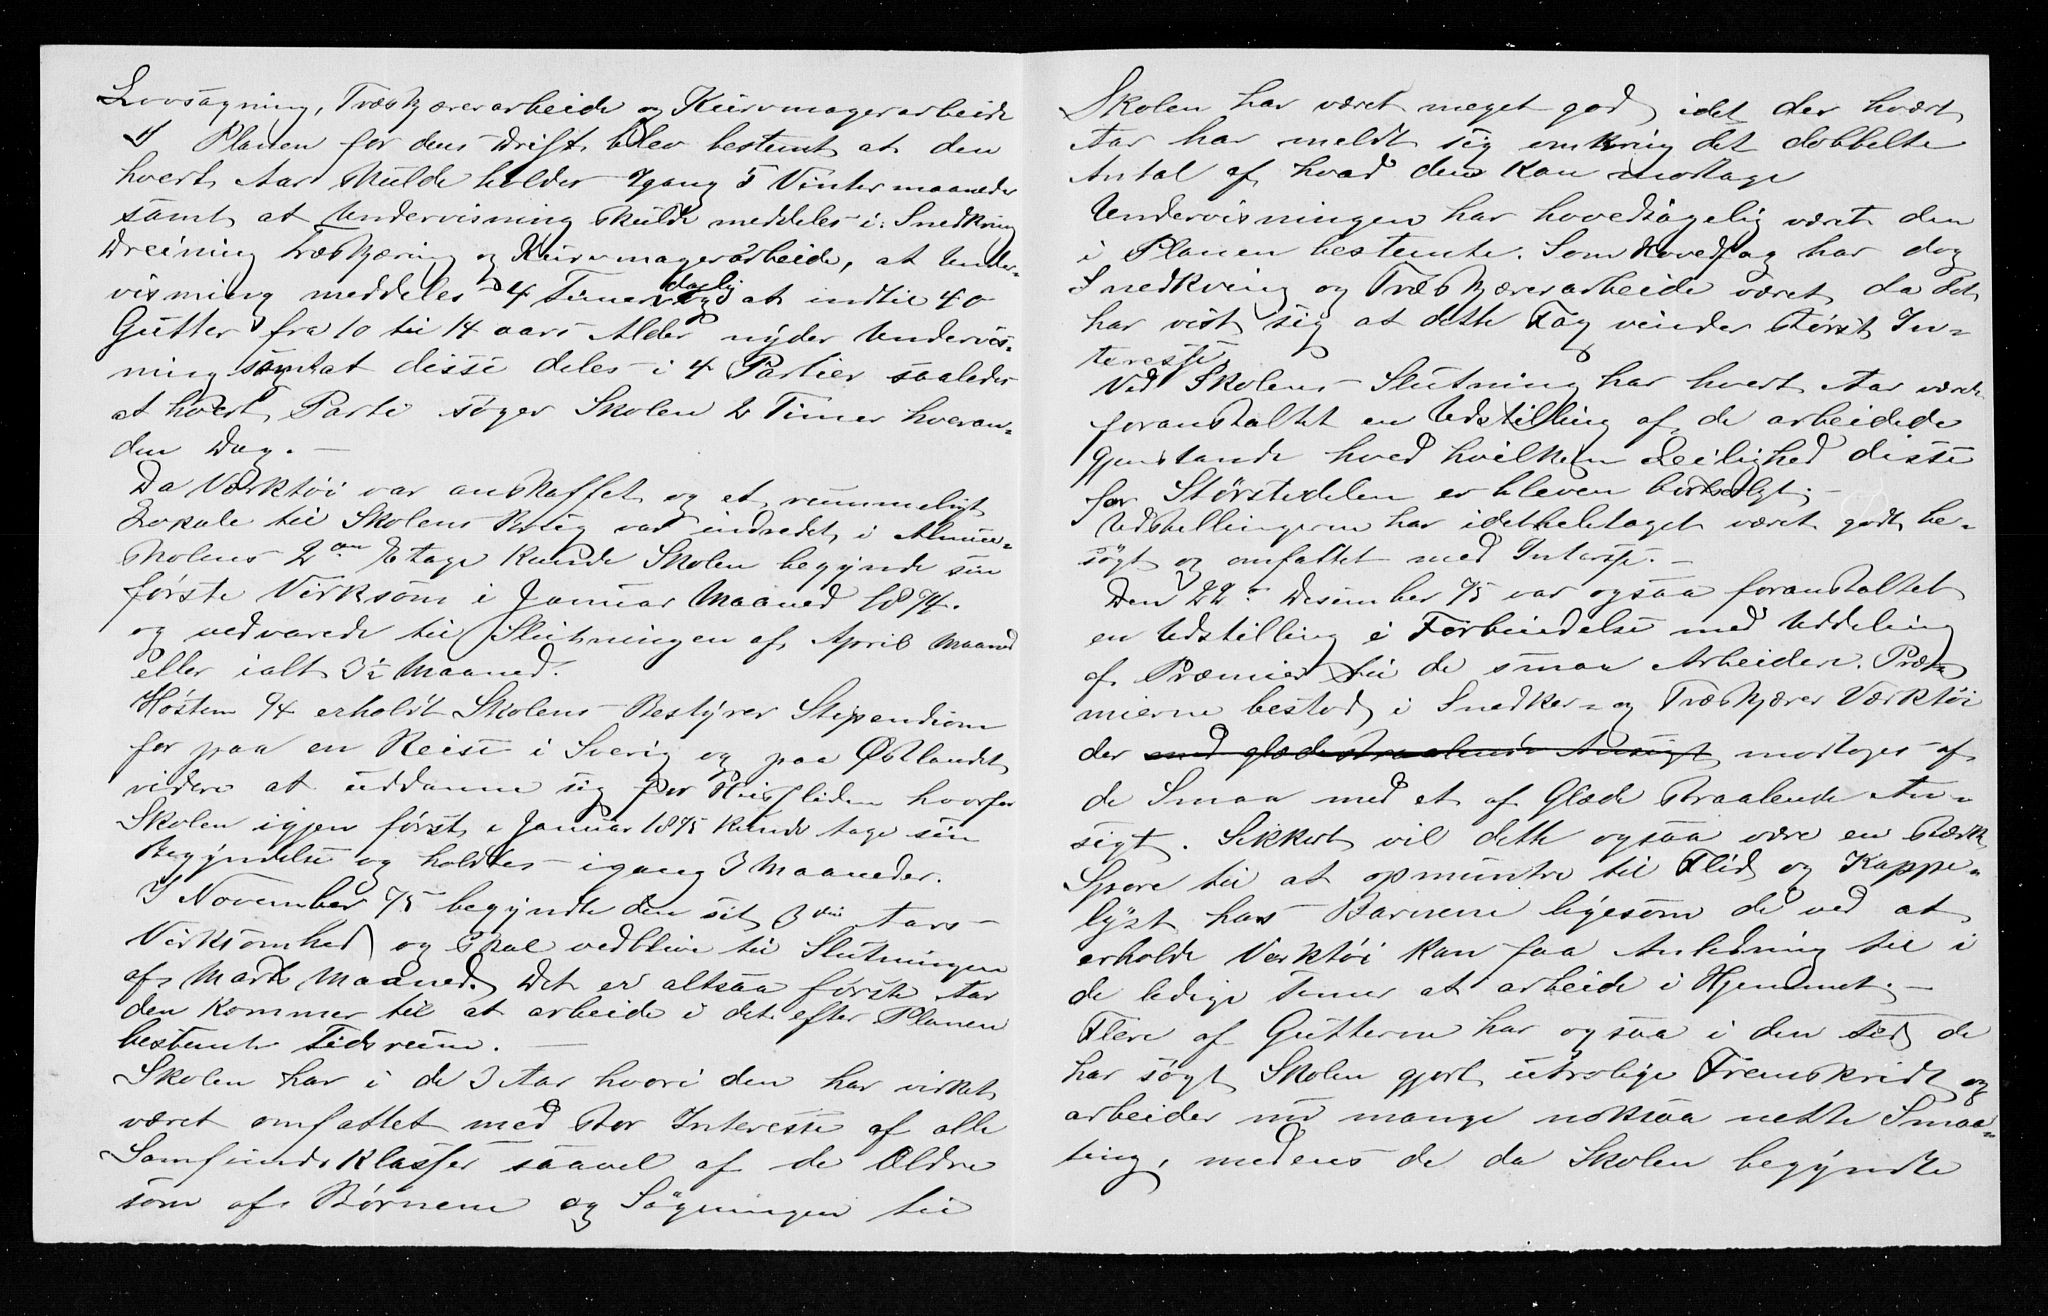 Løvsagning, Træskjærerarbeide og Kurvmagerarbeide
I Planen for dens Drift blev bestemt at den
hvert Aar skulde holdes igang 5 Vintermaaneder
samt at Undervisning skulde meddeles i: Snedkring
Dreining Træskjæring og Kurvmagerarbeide, at Under-
visning meddeles 4 Timer daglig og at indtil 40
Gutter fra 10 til 14 aars Alder nyder Undervis-
ning samt at disse deles i 4 Partier saaledes
at hvert Parti søger Skolen 2 Timer hveran-
den Dag. —
Da Værktøi var anskaffet og et rummeligt
Lokale til Skolens Brug var indredet i Almue-
skolens 2den Etage kunde Skolen begynde sin
første Virksom i Januar Maaned 1874.
og vedvarede til Slutningen af April Maaned
eller ialt 3½ Maaned.
Høsten 74 erholdt Skolens Bestyrer Stipendium
for paa en Reise i Sverig og paa Østlandet
videre at uddanne sig for Husfliden hvorfor
Skolen igjen først i Januar 1875 kunde tage sin
Begyndelse og holdtes igang 3 Maaneder.
I November 75 begyndte den sit 3die Aars
Virksomhed og skal vedblive til Slutningen
af Marts Maaned. Det er altsaa første Aar
den kommer til at arbeide i det efter Planen
bestemte Tidsrum. —
Skolen har i de 3 Aar hvori den har virket
været omfattet med stor Interesse af alle
Samfundsklasser saavel af de Ældre
som af Børnene og Søgningen til
Skolen har været meget god idet der hvert
Aar har meldt sig omkring det dobbelte
Antal af hvad den kan mottage
Undervisningen har hovedsagelig været den
i Planen bestemte. Som Hovedfag har dog
Snedkring og Træskjærerarbeide været da det
har vist sig at dette Fag vinder størst In-
teresse.
Ved Skolens Slutning har hvert Aar været
foranstaltet en Udstilling af de arbeidede
Gjenstande hved hvilken Leilighed disse
for Størstedelen er bleven bortsolgt. —
Udstillingerne har idetheletaget været godt be-
søgt og omfattet med Interesse. —
Den 22de Desember 75 var ogsaa foranstaltet
en Udstilling i Forbindelse med Uddeling
af Præmier til de smaa Arbeidere. Præ-
mierne bestod i Snedker- og Træskjærer Værktøi
der med glædestraalende Ansigt mottoges af
de Smaa med et af Glæde straalende An-
sigt. Sikkert vil dette ogsaa være en stærk
Spore til at opmuntre til Flid og Kappe-
lyst hos Barnene ligesom de ved at
erholde Verktøi kan faa Anledning til i
de ledige Timer at arbeide i Hjemmet. —
Flere af Gutterne har ogsaa i den Tid de
har søgt Skolen gjort utrolige Fremskridt og
arbeider nu mange noksaa nette Smaa-
ting, medens de da Skolen begyndte